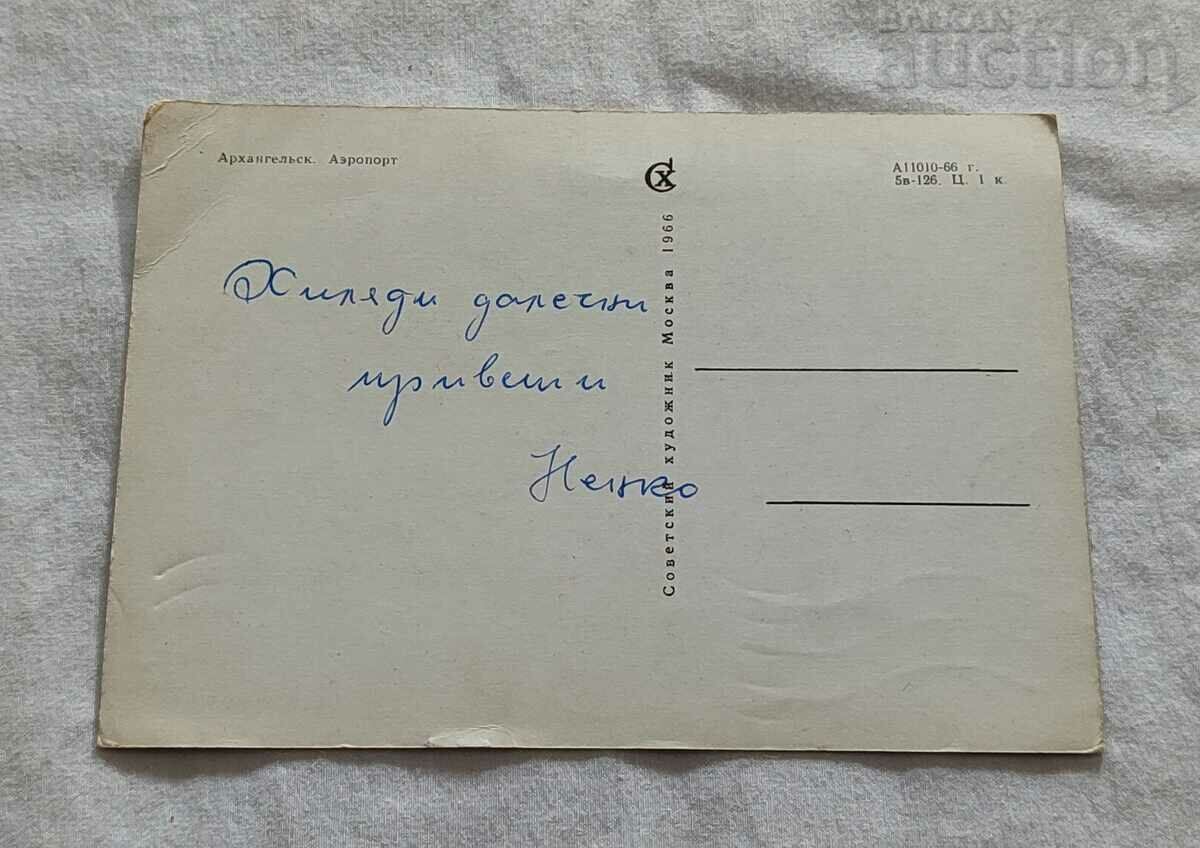 BALKAN
auction
Архангельск. Аэропорт
СХ
А11010-66 г.
5в-126. Ц. 1 к.
Советский художник Москва 1966
Хиляди далечни
привети
Ненко